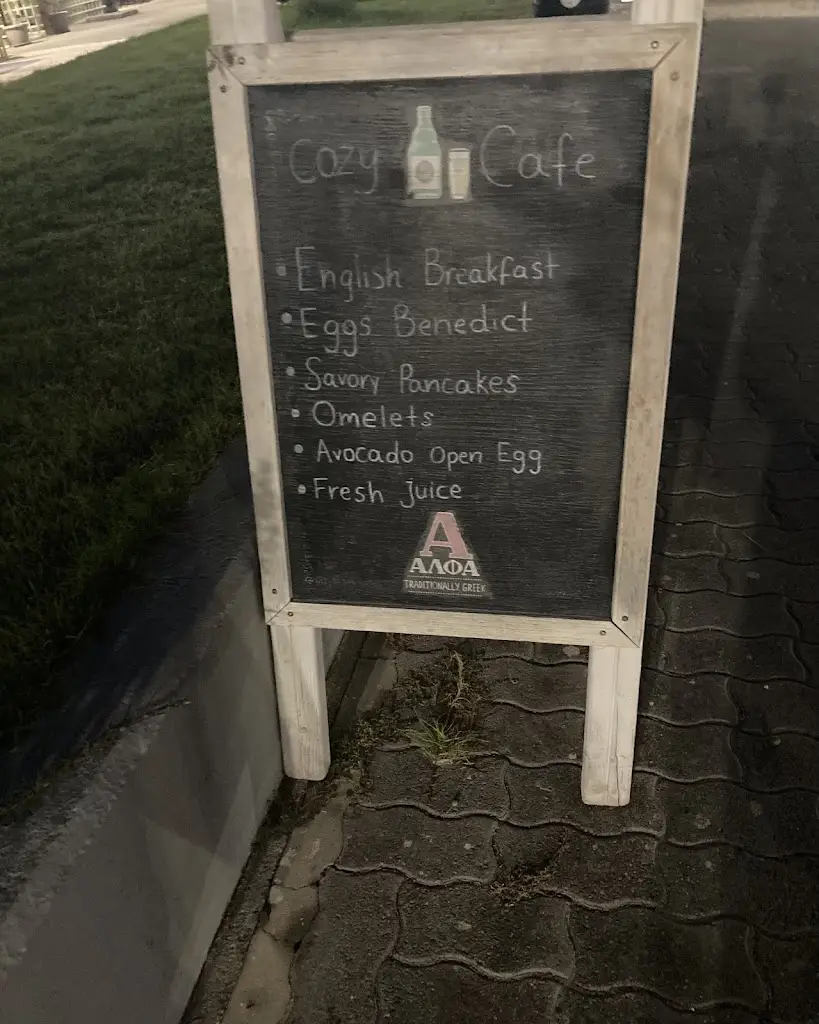 Cozy Cafe
• English Breakfast
• Eggs Benedict
• Savory Pancakes
• Omelets
• Avocado Open Egg
• Fresh Juice
A
ΑΛΦΑ
TRADITIONALLY GREEK